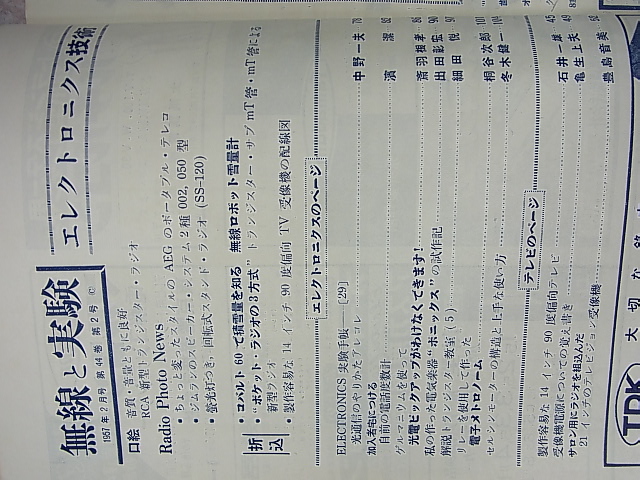 無線と実験
エレクトロニクス技術
1957年2月号 第44巻 第2号 ©
口絵 音質・音量ともに良好
RCA 新型トランジスター・ラジオ
Radio Photo News
• ちょっと変ったスタイルの AEG のポータブル・テレコ
• ジムランのスピーカー・システム2種 002, 050 型
• 螢光灯つき, 回転式スタンド・ラジオ (SS-120)
折込
• コバルト60で積雪量を知る 無線ロボット雪量計
• “ポケット・ラジオの3方式” トランジスター・サブmT管・mT管による
新型ラジオ
• 製作容易な 14 インチ 90 度偏向 TV 受像機の配線図
エレクトロニクスのページ
ELECTRONICS 実験手帳—[29]
光通信のやりかたアレコレ 中野一夫 78
加入者宅につける
自前の電話度数計 濱 潔 80
ゲルマニウムを使って
光電ピックアップがわけなくできます! 斎羽根孝
私の作った電気楽器“ホニックス”の試作記 出田彰宏 90
解説トランジスター教室 (5) 細田 悦 97
リレーを使用して作った
電子メトロノーム 桐谷次郎 101
セルシンモーターの構造と上手な使い方 冬木健一 104
テレビのページ
製作容易な 14 インチ 90 度偏向テレビ 石井一雄 45
受像機電源についての覚え書き 亀生上夫 49
サロン用にラジオを組込んだ
21 インチのテレビジョン受像機 豊島音美
TDK
大切な